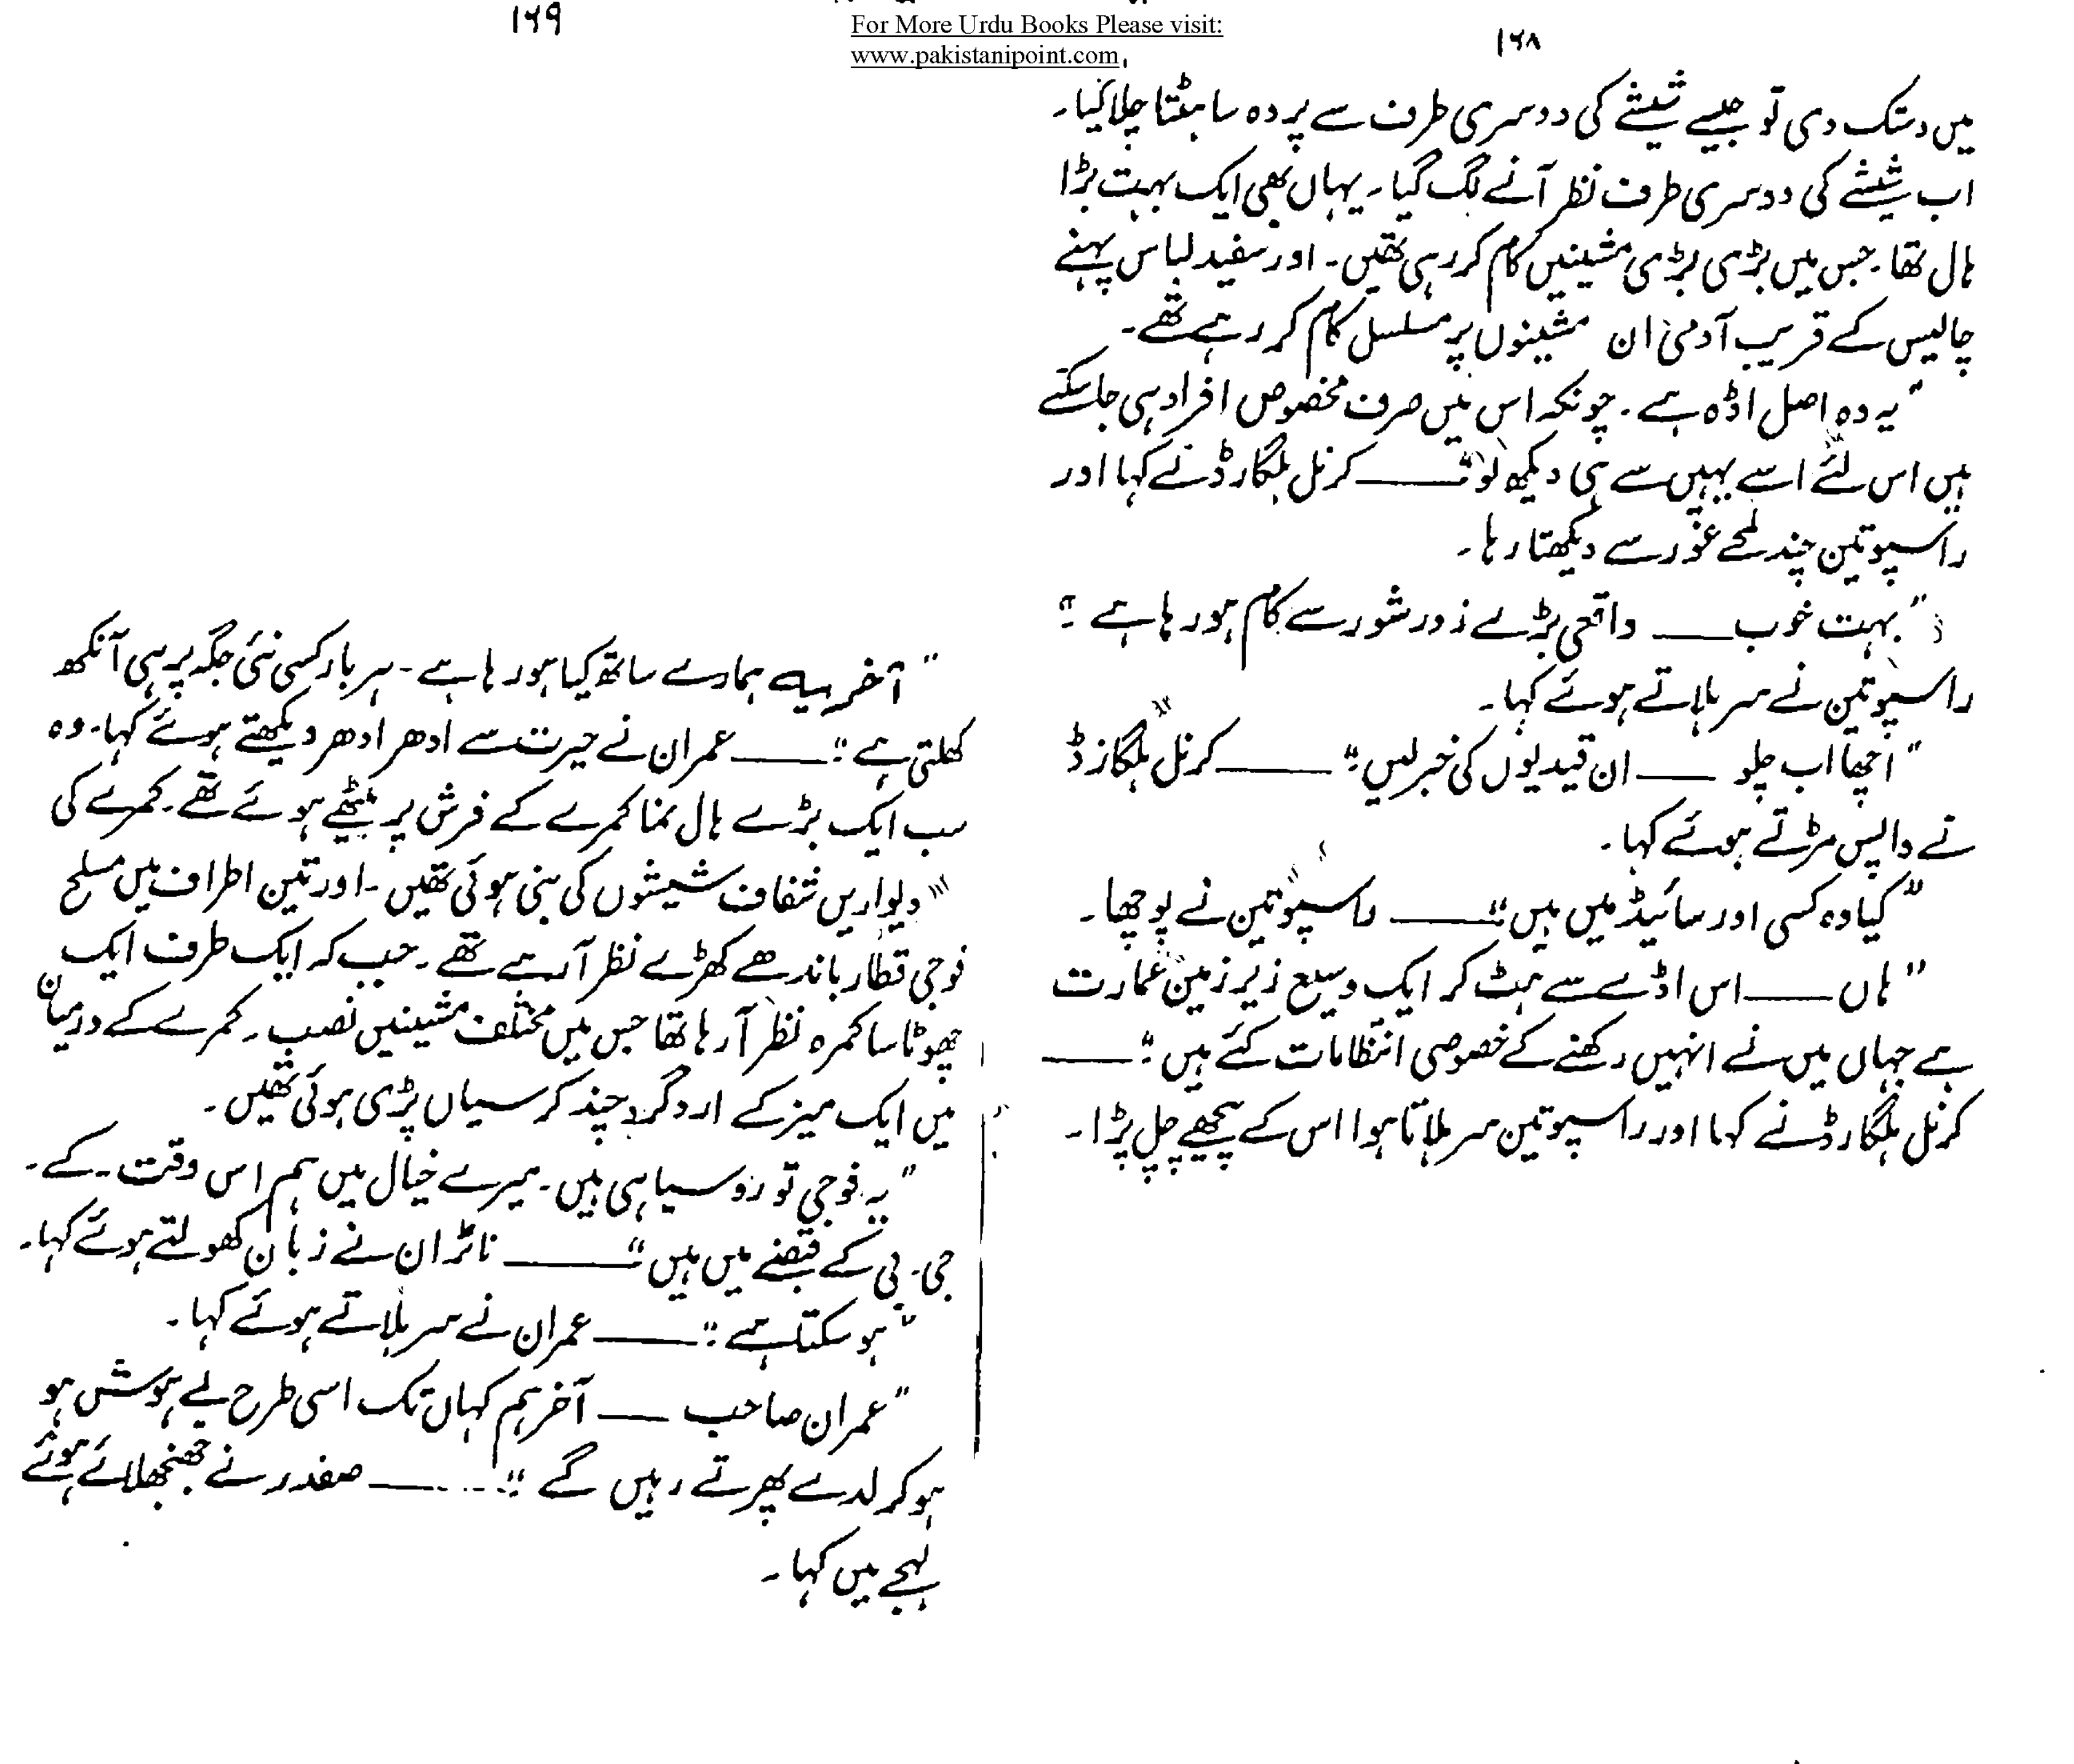 For More Urdu Books Please visit:
www.pakistanipoint.com
۱۶۸
میں دستک دی تو جیسے شیشے کی دوسری طرف سے پردہ سا ہٹتا چلا گیا۔
اب شیشے کی دوسری طرف نظر آنے لگ گیا۔ یہاں بھی ایک بہت بڑا
ہال تھا۔ جس میں بڑی بڑی مشینیں کام کر رہی تھیں۔ اور سفید لباس پہنے
چالیس کے قریب آدمی ان مشینوں پر مسلسل کام کر رہے تھے۔
"یہ وہ اصل اڈہ ہے۔ چونکہ اس میں صرف مخصوص افراد ہی جا سکتے
ہیں اس لئے اسے یہیں سے ہی دیکھ لو"۔ــــــ کرنل ہلگارڈ نے کہا اور
راسپوتین چند لمحے غور سے دیکھتا رہا۔
"بہت خوب ــــــ واقعی بڑے زور شور سے کام ہو رہا ہے"۔
راسپوتین نے سر ہلاتے ہوئے کہا۔
"اچھا اب چلو ــــــ ان قیدیوں کی خبر لیں"۔ ــــــ کرنل ہلگارڈ
نے واپس مڑتے ہوئے کہا۔
"کیا وہ کسی اور سائیڈ میں ہیں"۔ــــــ راسپوتین نے پوچھا۔
"ہاں ــــــ اس اڈے سے ہٹ کر ایک وسیع زیر زمین عمارت
ہے جہاں میں نے انہیں رکھنے کے خصوصی انتظامات کئے ہیں"۔ــــــ
کرنل ہلگارڈ نے کہا اور راسپوتین سر ہلاتا ہوا اس کے پیچھے چل پڑا۔
۱۶۹
"آخر یہ ہمارے ساتھ کیا ہو رہا ہے۔ ہر بار کسی نئی جگہ پر ہی آنکھ
کھلتی ہے"۔ــــــ عمران نے حیرت سے ادھر ادھر دیکھتے ہوئے کہا۔ وہ
سب ایک بڑے ہال نما کمرے کے فرش پر بیٹھے ہوئے تھے۔ کمرے کی
دیواریں شفاف شیشوں کی بنی ہوئی تھیں۔ اور تین اطراف میں مسلح
فوجی قطار باندھے کھڑے نظر آ رہے تھے۔ جب کہ ایک طرف ایک
چھوٹا سا کمرہ نظر آ رہا تھا جس میں مختلف مشینیں نصب۔ کمرے کے درمیان
میں ایک میز کے ارد گرد چند کرسیاں پڑی ہوئی تھیں۔
"یہ فوجی تو روسیاہی ہیں۔ میرے خیال میں ہم اس وقت۔ کے۔
جی۔ بی کے قبضے میں ہیں"ــــــ ناٹران نے زبان کھولتے ہوئے کہا۔
"ہو سکتا ہے"۔ــــــ عمران نے سر ہلاتے ہوئے کہا۔
"عمران صاحب ــــــ آخر ہم کہاں تک اسی طرح بے ہوش ہو
ہو کر لدے پھرتے رہیں گے"۔ــــــ صفدر نے جھنجھلائے ہوئے
لہجے میں کہا۔